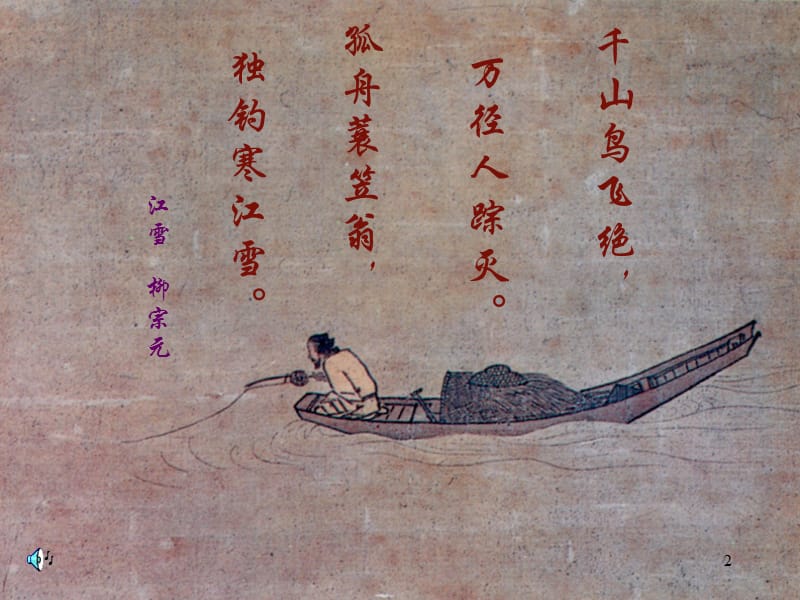 千山鸟飞绝，
万径人踪灭。
孤舟蓑笠翁，
独钓寒江雪。
江雪 柳宗元
2